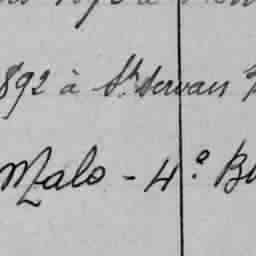 892 à St Servan
Malo - 4° B